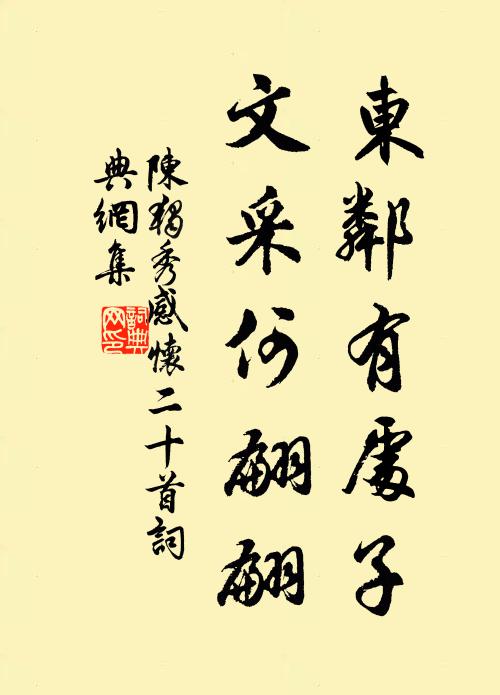 東鄰有處子
文采何翩翩
陳獨秀感懷二十首詞
典網集
詞典
网印